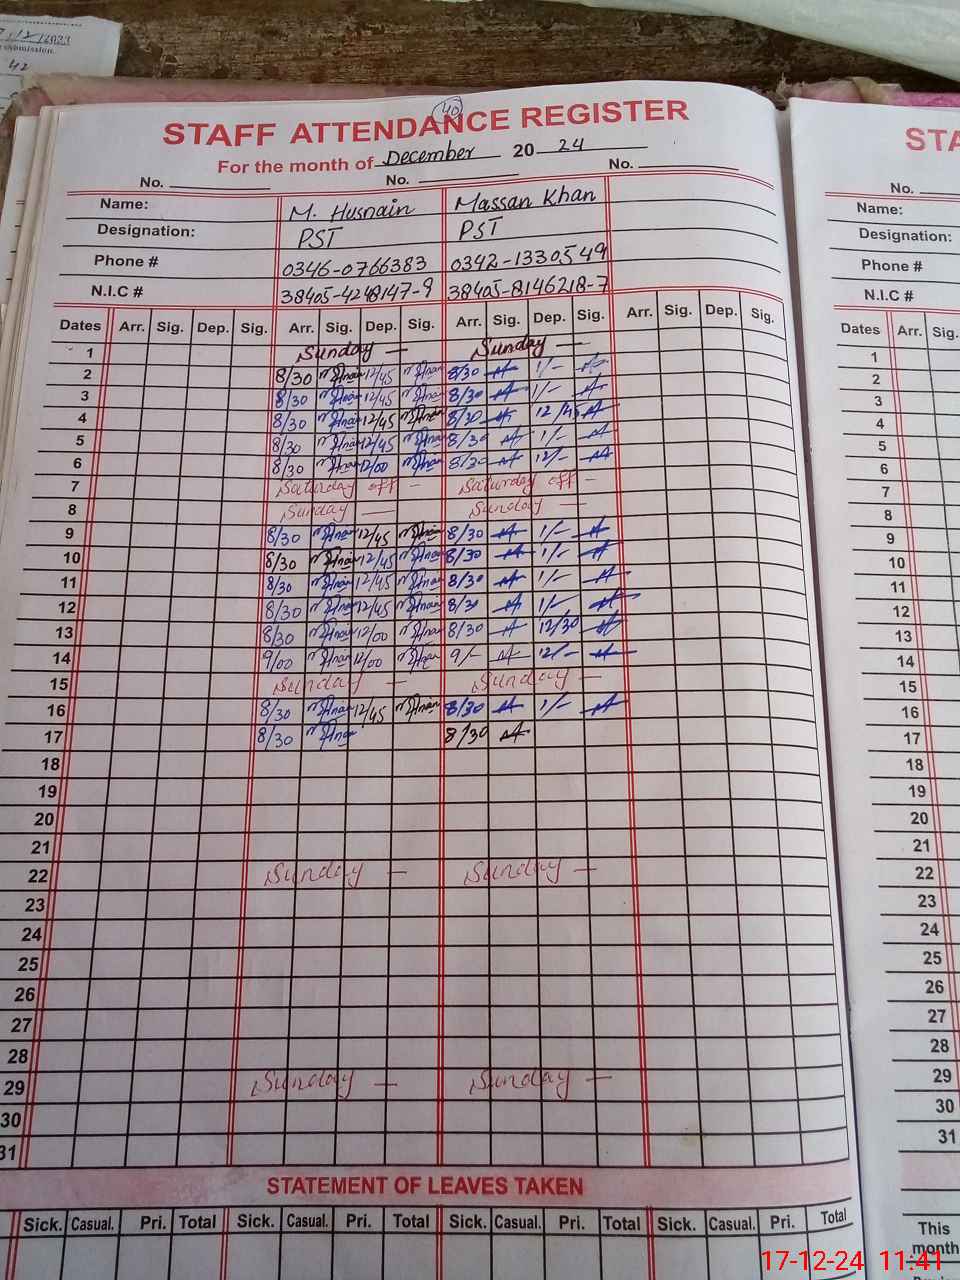 42
40
STAFF ATTENDANCE REGISTER
For the month of December 20 24
No. No. No.
Name: M. Husnain Massan Khan
Designation: PST PST
Phone # 0346-0766383 0342-1330549
N.I.C # 38405-4248147-9 38405-8146218-7
Dates Arr. Sig. Dep. Sig. Arr. Sig. Dep. Sig. Arr. Sig. Dep. Sig. Arr. Sig. Dep. Sig.
1 Sunday — Sunday —
2 8/30 12/45 8/30 1/-
3 8/30 12/45 8/30 1/-
4 8/30 12/45 8/30 12/45
5 8/30 12/45 8/30 1/-
6 8/30 12/00 8/30 12/-
7 Saturday off - Saturday off -
8 Sunday — Sunday —
9 8/30 12/45 8/30 1/-
10 8/30 12/45 8/30 1/-
11 8/30 12/45 8/30 1/-
12 8/30 12/45 8/30 1/-
13 8/30 12/00 8/30 12/30
14 9/00 12/00 9/- 12/-
15 Sunday — Sunday —
16 8/30 12/45 8/30 1/-
17 8/30 8/30
18
19
20
21
22 Sunday — Sunday —
23
24
25
26
27
28
29 Sunday — Sunday —
30
31
STATEMENT OF LEAVES TAKEN
Sick. Casual. Pri. Total Sick. Casual. Pri. Total Sick. Casual. Pri. Total Sick. Casual. Pri. Total
STA
No.
Name:
Designation:
Phone #
N.I.C #
Dates Arr. Sig.
1
2
3
4
5
6
7
8
9
10
11
12
13
14
15
16
17
18
19
20
21
22
23
24
25
26
27
28
29
30
31
This
month
17-12-24 11:41